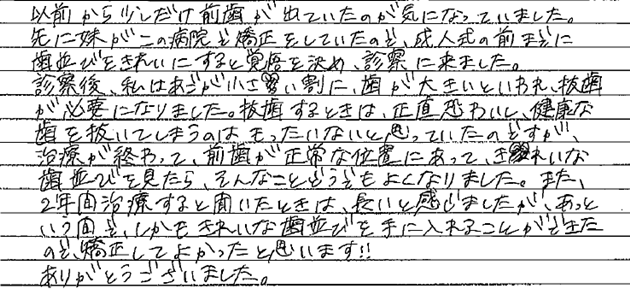 以前から少しだけ前歯が出ていたのが気になっていました。
先に妹がこの病院で矯正をしていたので、成人式の前までに
歯並びをきれいにすると覚悟を決め、診察に来ました。
診察後、私はあごが小さい割に、歯が大きいといわれ、抜歯
が必要になりました。抜歯するときは、正直恐わいし、健康な
歯を抜いてしまうのはもったいないと思っていたのですが、
治療が終わって、前歯が正常な位置にあって、きれいな
歯並びを見たら、そんなことどうでもよくなりました。また、
2年間治療すると聞いたときは、長いと感じましたが、あっと
いう間で、しかもきれいな歯並びを手に入れることができた
ので、矯正してよかったと思います!!
ありがとうございました。